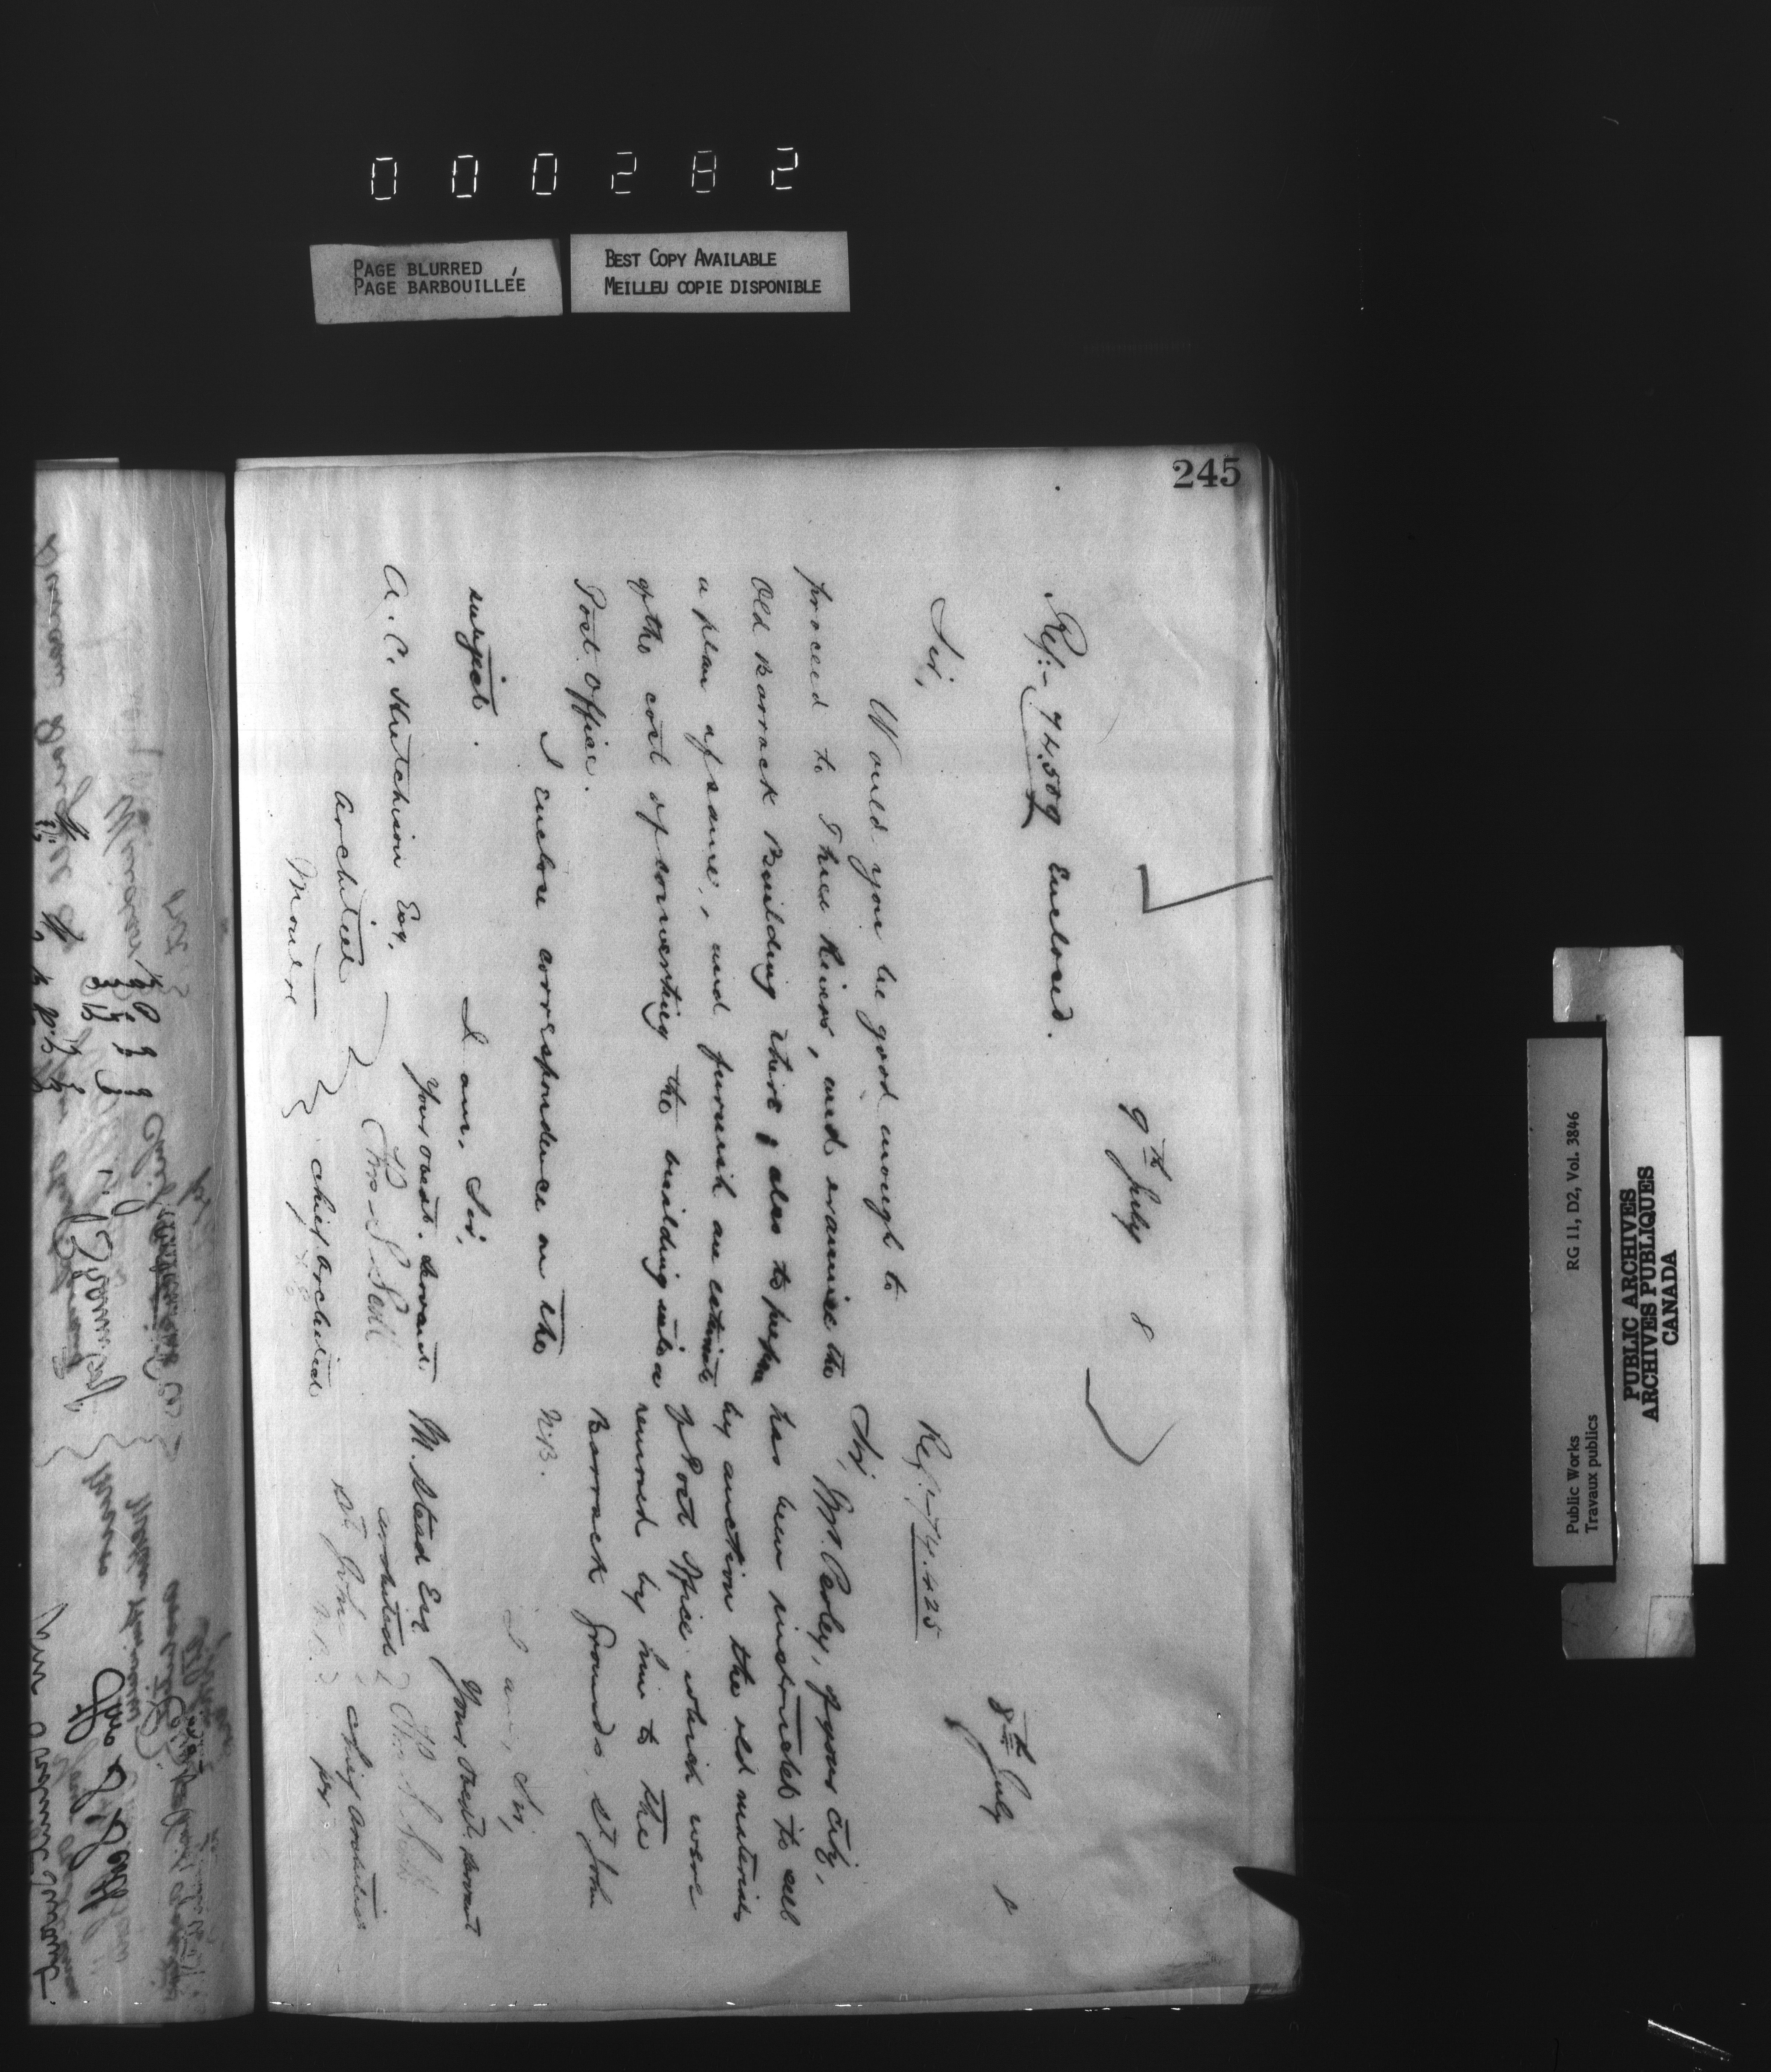 000282
PAGE BLURRED
PAGE BARBOUILLÉE
BEST COPY AVAILABLE
MEILLEU COPIE DISPONIBLE
245
9th July 8
Ref:- 74,509 Enclosed.
Sir,
Would you be good enough to
proceed to Three Rivers, and examine the
Old Barrack Building there, also to prepare
a plan of same, and furnish an estimate
of the cost of converting the building into a
Post Office.
I enclose correspondence on the
subject.
I am, Sir,
Your obedt. servant
A. C. Hutchison Esq.
Architect
Chief Architect
8th July 8
Ref:- 74.425
Sir,
Mr. Perley, of your City,
has been instructed to sell
by auction the old materials
of Post Office which were
removed by him to the
Barrack Grounds, St John
N.B.
I am, Sir,
Your Obedt. Servant
M. Stead Esq
Architect
St. John
N.B.
Thos. S. Scott
Chief Architect
Public Works
Travaux publics
RG 11, D2, Vol. 3846
PUBLIC ARCHIVES
ARCHIVES PUBLIQUES
CANADA